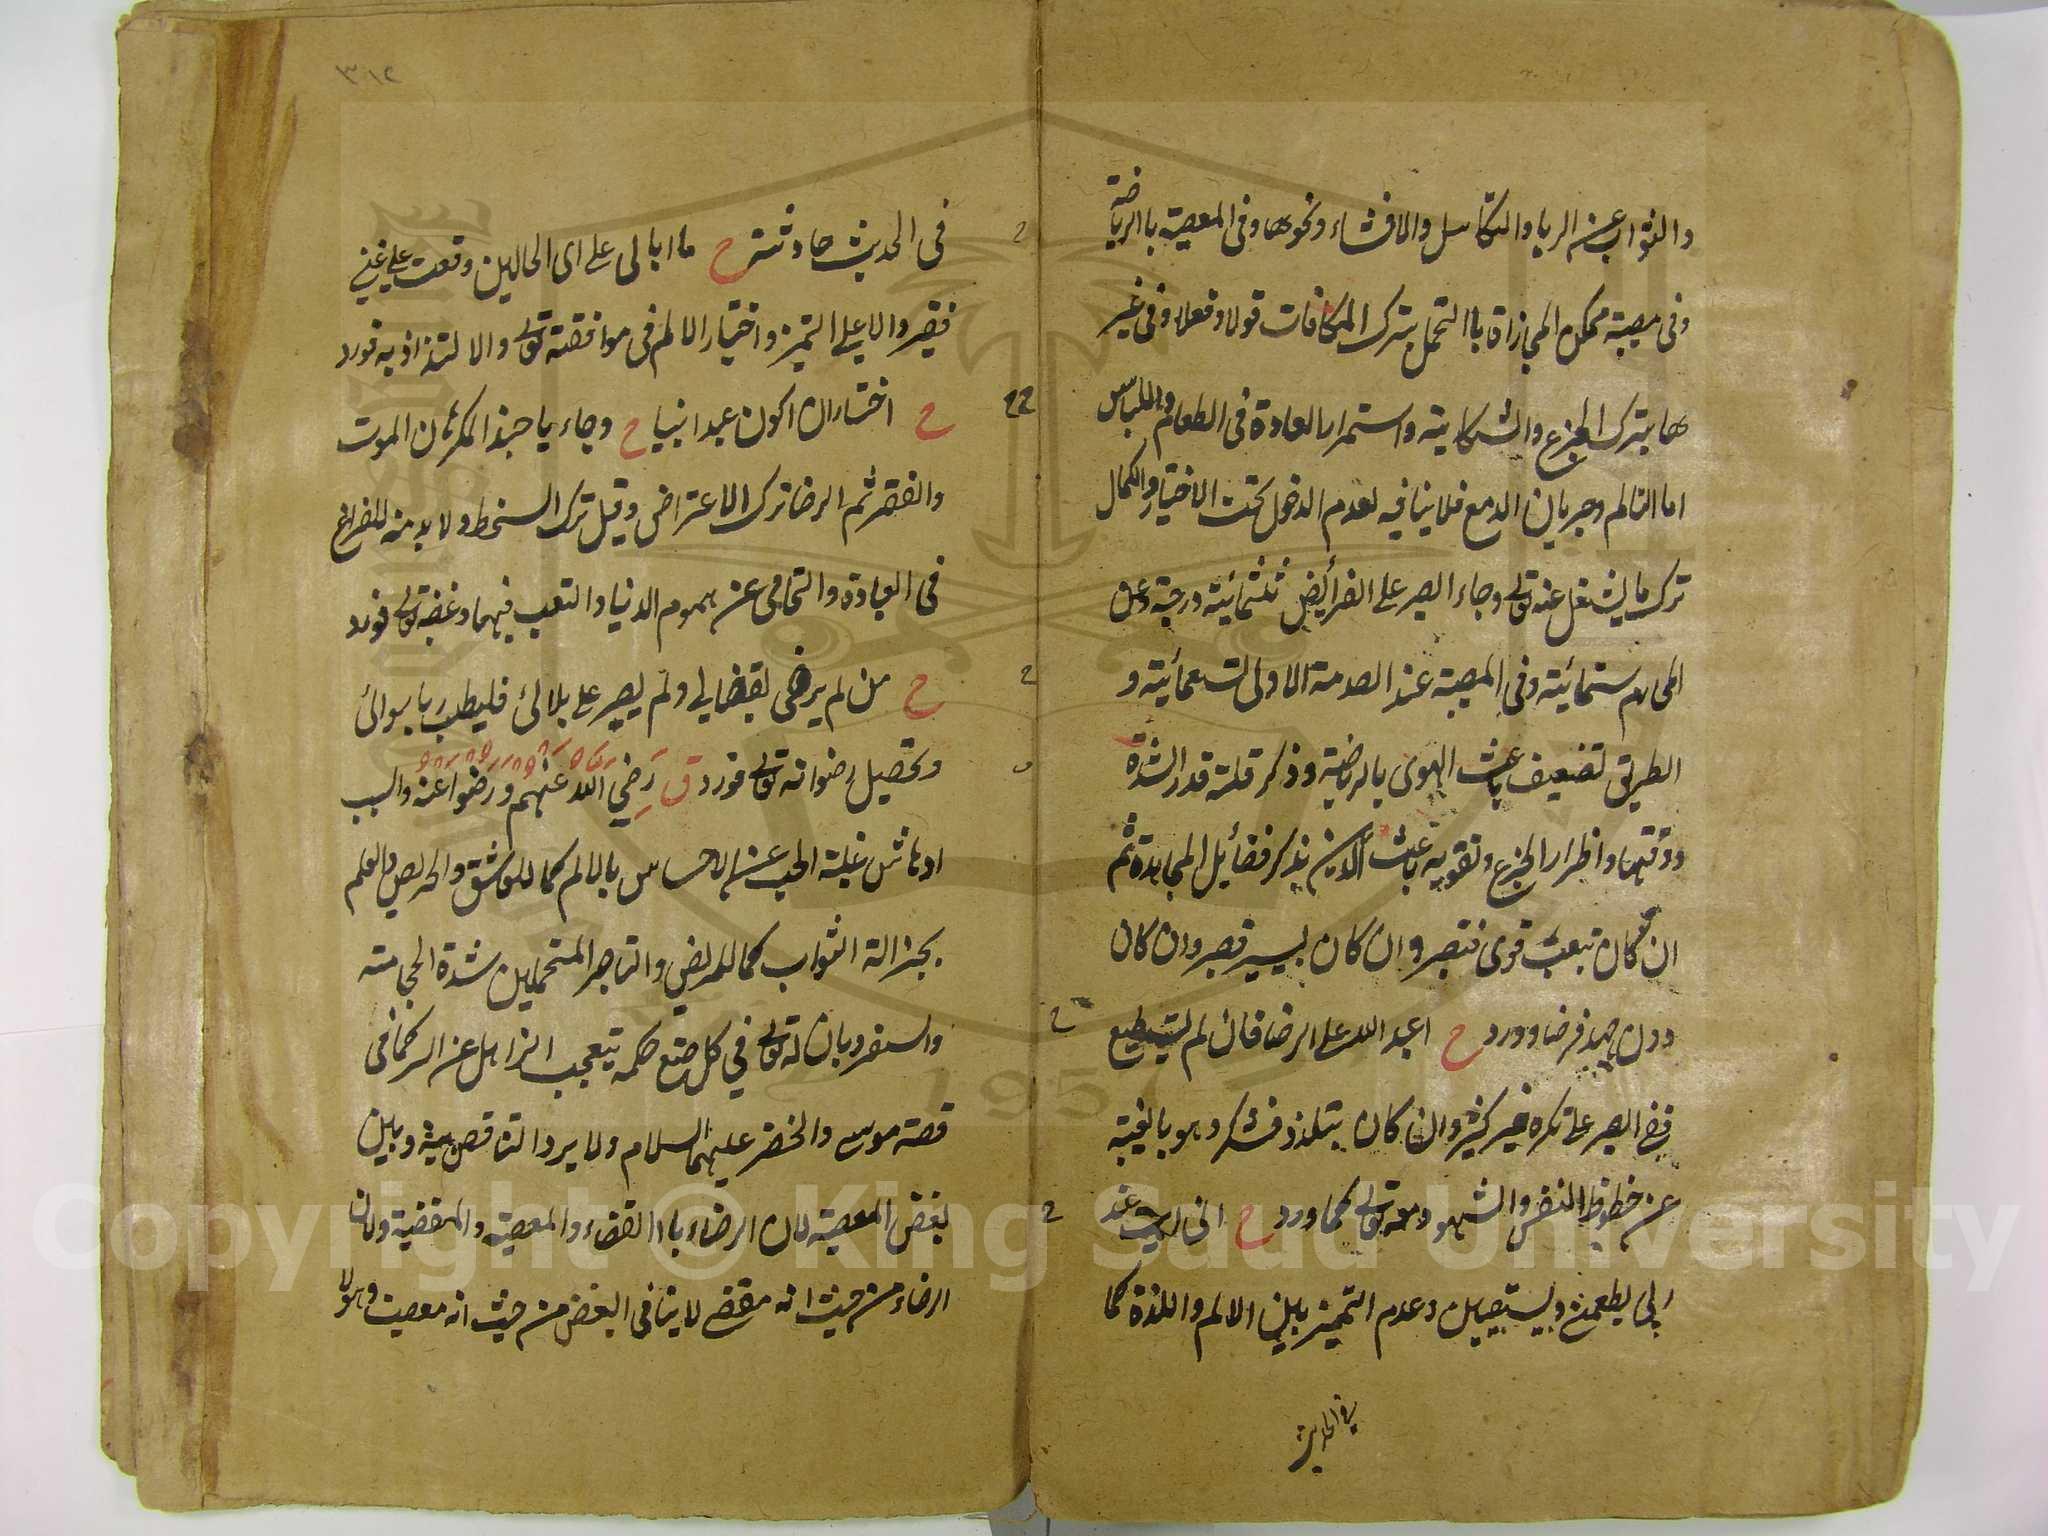 والثواب عن الريا والتكاسل والافشاء ونحوها وفى المعصية باالرياضة
وفى مصيبة ممكن المجازاة باالتحمل بترك المكافات قولا وفعلا وفى غير
ها بترك الجزع والشكاية واستمرار العادة فى الطعام واللباس
اما التالم وجريان الدمع فلا ينافيه لعدم الدخول تحت الاختيار والكمال
ترك ما يشغل عنه تعالى وجاء الصبر على الفرأيض ثلثمائية درجة وعن
المحارم ستمائية وفى المصيبة عند الصدمة الاولى تسعمائية و
الطريق تضعيف باعث الهوى بالرياضية وذكر قلة قدر الشدة
ووقتها واظرار الجزع وتقويه باعث الدين بذكر فضأيل المجاهدة ثم
ان كان تبعب قوى فتصبر وان كان يسير فصبر وان كان
دون جهد فرضا وورد ح اعبد الله على الرضا فان لم تستطيع
ففى الصبر على تكره خير كثير وان كان يتلذذ فشكر وهو بالغيبة
عن خطوظ النفس والشهود معه تعالى كما ورد ح انى ابيت عند
ربى يطعمنى ويسقين وعدم التميز بين الالم واللذة كما
فى الحديث
٣١٤
فى الحديث حادثة ح ما ابالى على اى الحالين وقعت على غنى
فقير والا على التميز واختيار الالم فى موافقته تعالى والالتذاذ به فورد
ح اختار ان اكون عبدا نبيا ح وجاء يا حبذا المكرثان الموت
والفقر ثم الرضا ترك الاعتراض وقيل ترك السخط ولا بد منه للفراغ
فى العبادة والتحامى عن هموم الدنيا والتعب فيهما وغضبه تعالى فورد
ح من لم يرضى بقضايى ولم يصبر على بلائى فليطلب ربا سوائى
وتحصيل رضوانه تعالى فورد ق رَضِيَ الله عنهم ورضوا عنه والسبب
ادهاش غلبة الحب عن الاحساس بالالم كما للعاشق والحريص والعلم
بجزالة الثواب كما للمريض والتاجر المتحملين شدة الحجامة
والسفر وبان له تعالى في كل صنع حكمه يتعجب الذاهل عن السر كما فى
قصة موسى والخضر عليهما السلام ولا يرد التناقص بينه وبين
بغض المعصية لان الرضاء باالقضاء والمعصية والمقضية ولان
الرضاء من حيث انه مقضى لا ينافى البغض من حيث انه معصيت وهولا